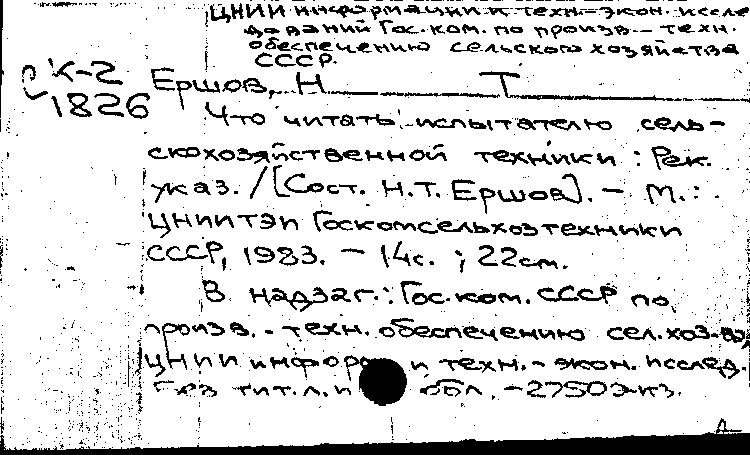 ЦНИИ информации и техн.-экон. иссле
дований Гос. ком. по произв.-техн.
обеспечению сельского хозяйства
СССР.
К-2 Ершов, Н Т
1826
Что читать испытателю сель-
скохозяйственной техники : Рек.
указ. / [Сост. Н.Т. Ершов]. - М. :
ЦНИИТЭИ Госкомсельхозтехники
СССР, 1983. - 14с. ; 22см.
В надзаг.: Гос. ком. СССР по
произв.-техн. обеспечению сел. хоз-ва,
ЦНИИ информ и техн.-экон. исслед.
Без тит. л. и обл. -2750экз.